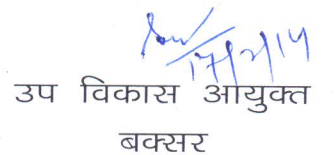 17/2/14
उप विकास आयुक्त
बक्सर